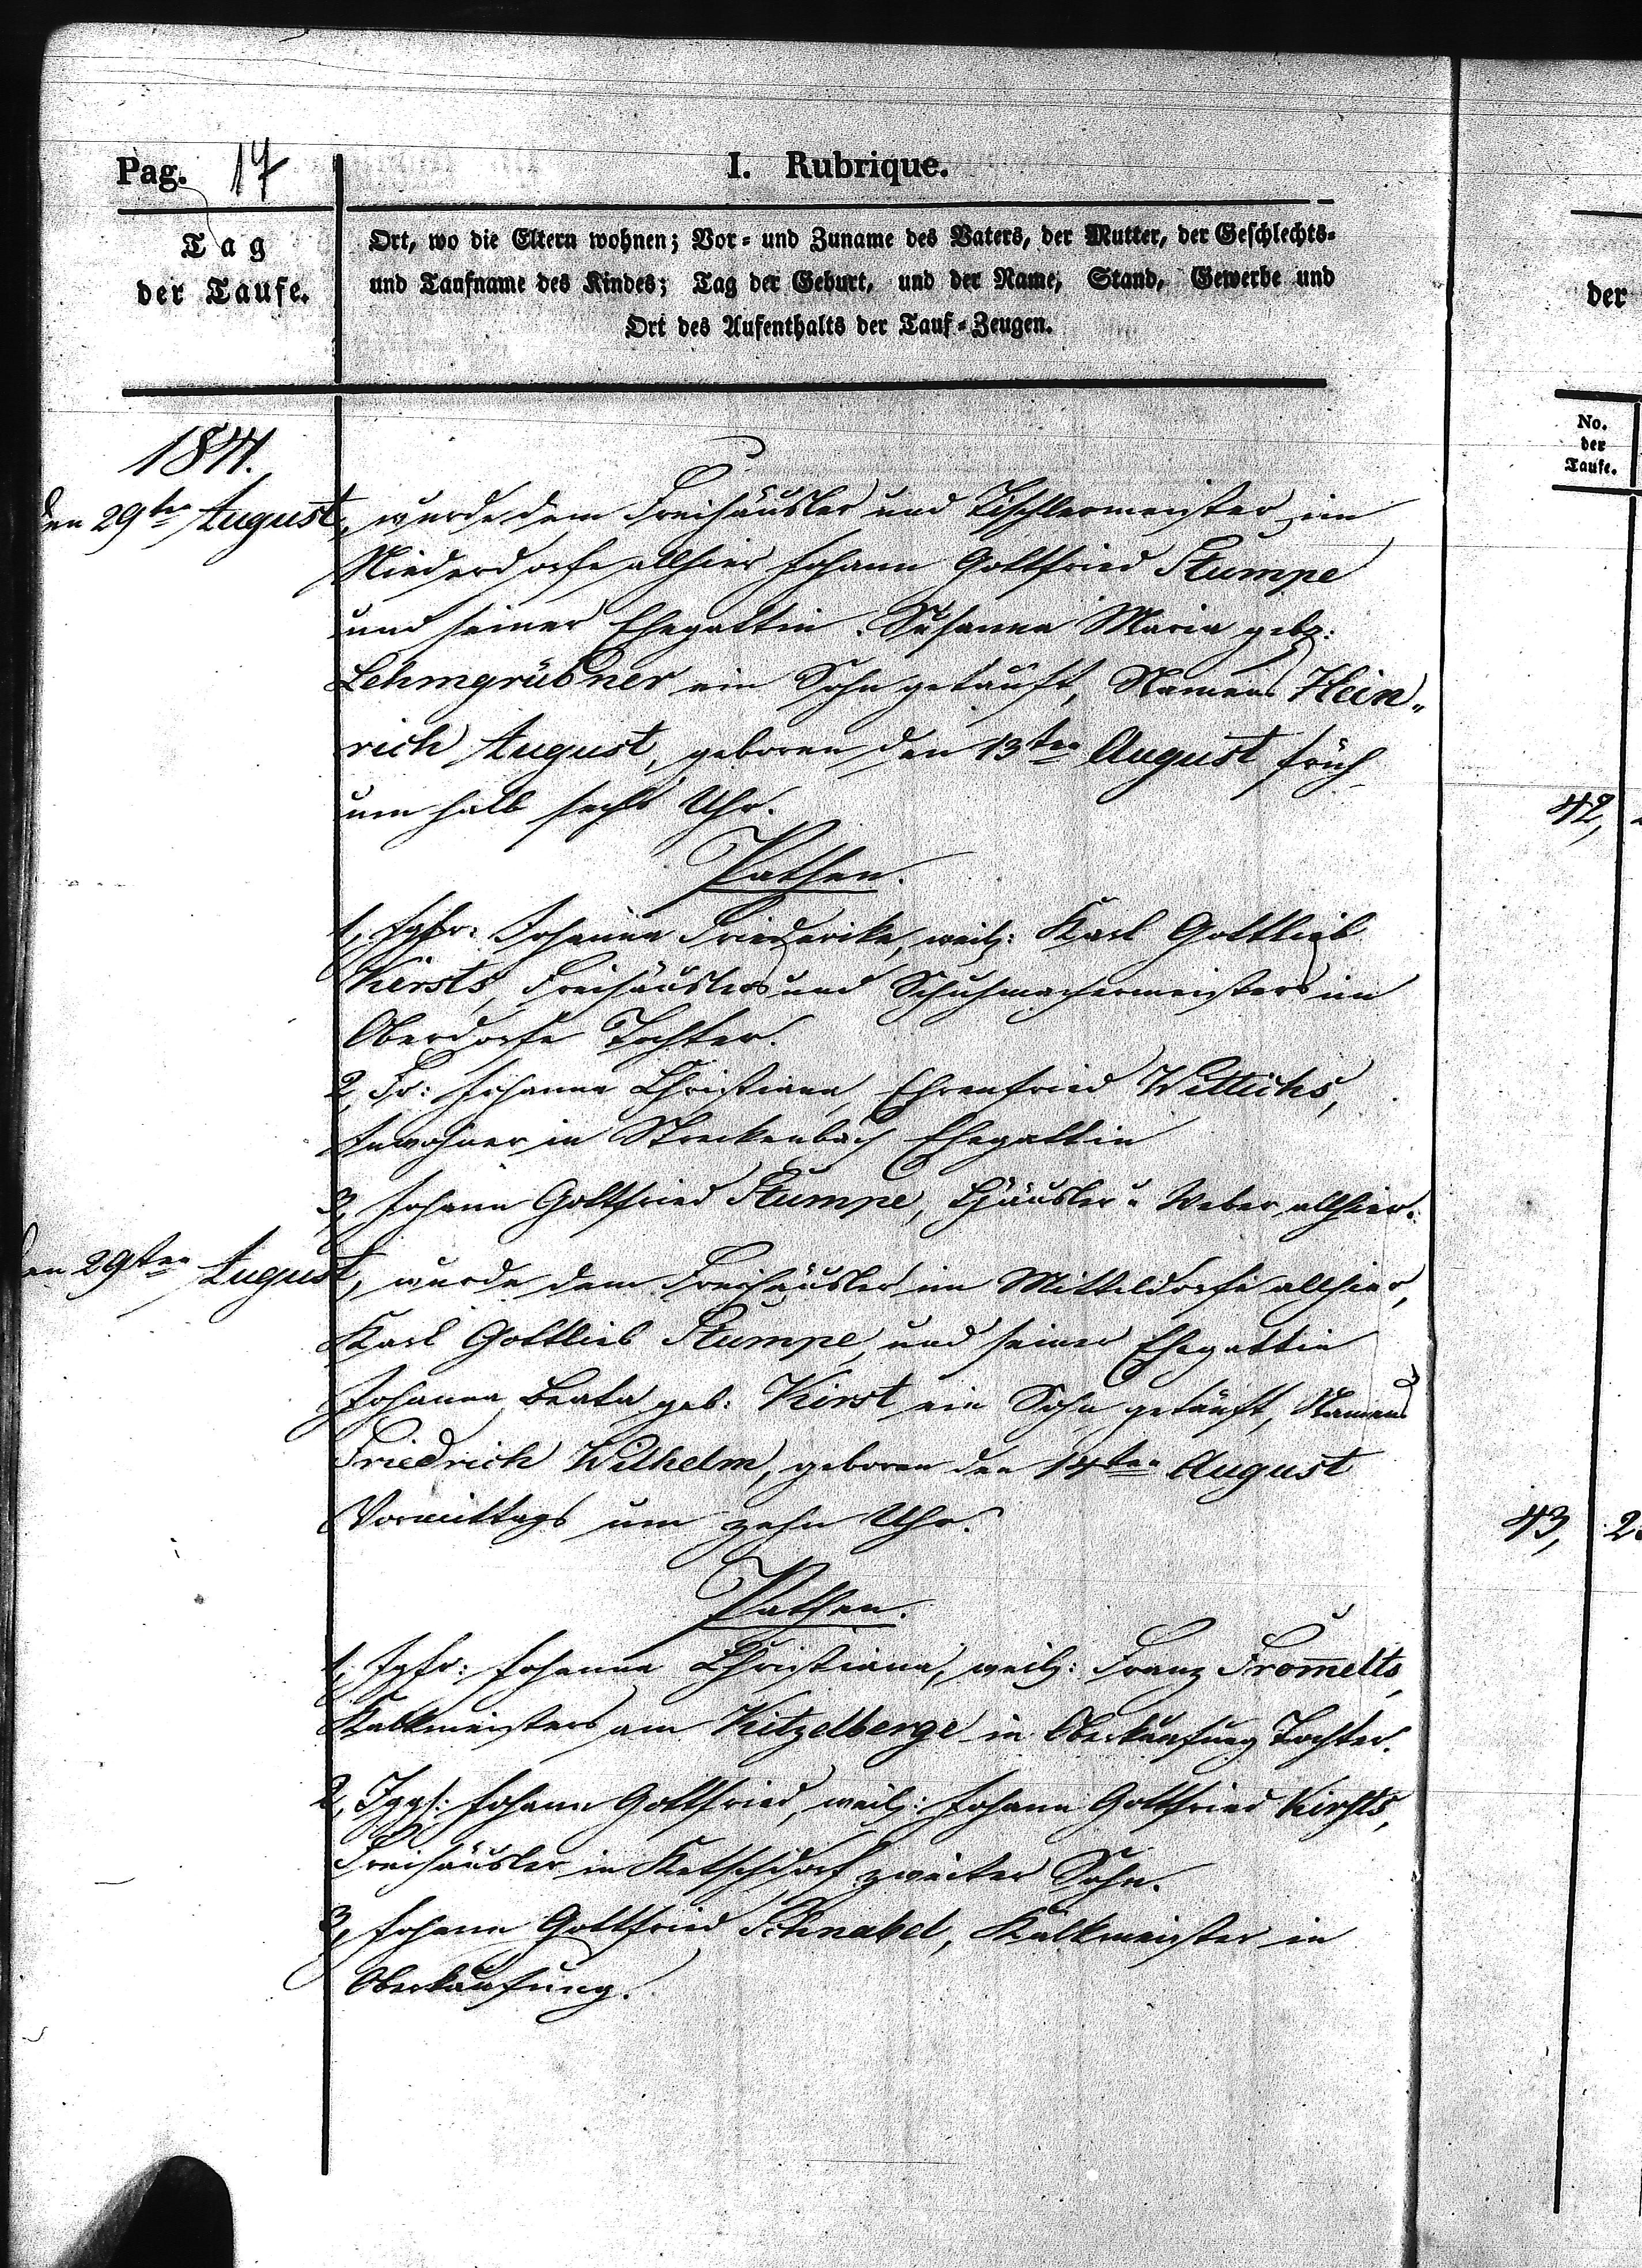 Pag. 17
I. Rubrique.
Tag
der Taufe.
Ort, wo die Eltern wohnen; Vor- und Zuname des Vaters, der Mutter, der Geschlechts-
und Taufname des Kindes; Tag der Geburt, und der Name, Stand, Gewerbe und
Ort des Aufenthalts der Tauf-Zeugen.
1841.
den 29ten August, wurde dem Freihäusler und Tischlermeister im
Niederdorfe allhier Johann Gottfried Stumpe
und seiner Ehegattin Susanna Maria geb:
Lehmgrübner ein Sohn getauft, Namens Hein„
rich August, geboren den 13ten August früh
um halb sechs Uhr.
Pathen.
1, Jgfr: Johanne Friederike, weil: Karl Gottlieb
Kirsts, Freihäuslers und Schuhmachermeisters im
Oberdorfe Tochter.
2, Fr: Johanne Christiane, Ehrenfried Wittichs,
Inwohner in Streckenbach Ehegattin
3, Johann Gottfried Stumpe, Häusler u Weber allhier.
den 29ten August, wurde dem Freihäusler im Mitteldorfe allhier,
Karl Gottlieb Stumpe, und seiner Ehegattin
Johanna Beata geb: Kirst ein Sohn getauft, Namens
Friedrich Wilhelm, geboren den 14ten August
Vormittags um zehn Uhr.
Pathen.
1, Jgfr: Johanne Christiane, weil: Franz From̄elts,
Kalkmeisters am Kitzelberge in Oberkaufung Tochter.
2, Jggs: Johann Gottfried, weil: Johann Gottfried Kirsts,
Freihäusler in Ketschdorf zweiter Sohn.
3, Johann Gottfried Schnabel, Kalkmeister in
Oberkaufung.
der
No.
der
Taufe.
42,
43, 2